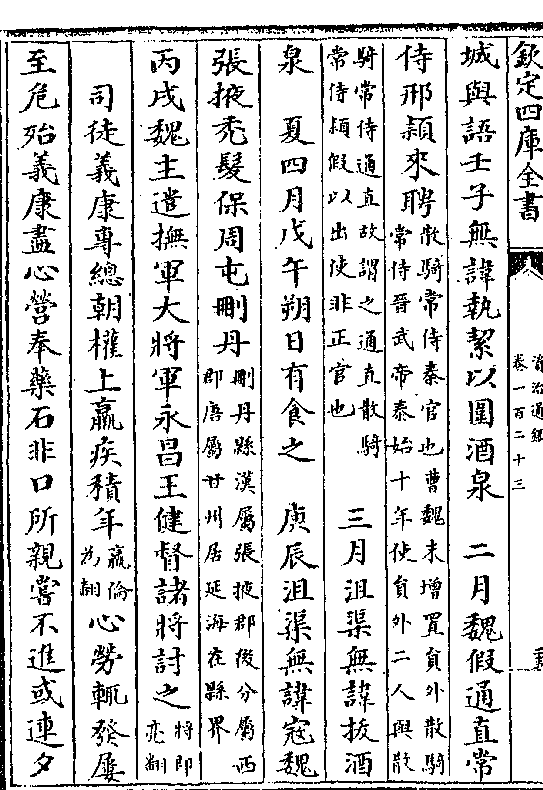 欽定四庫全書
資治通鑑
卷一百二十三
城與語壬子無諱執絜以圍酒泉　二月魏假通直常
侍邢穎來聘散騎常侍秦官也曹魏末增置員外散騎
常侍晉武帝泰始十年使員外二人與散
騎常侍通直故謂之通直散騎
常侍穎假以出使非正官也　三月沮渠無諱拔酒
泉　夏四月戊午朔日有食之　庚辰沮渠無諱寇魏
張掖禿髮保周屯刪丹刪丹縣漢屬張掖郡後分屬西
郡唐屬甘州居延海在縣界
丙戌魏主遣撫軍大將軍永昌王健督諸將討之將即
亮翻
司徒義康專總朝權上羸疾積年羸倫
為翻心勞輒發屢
至危殆義康盡心營奉藥石非口所親嘗不進或連夕